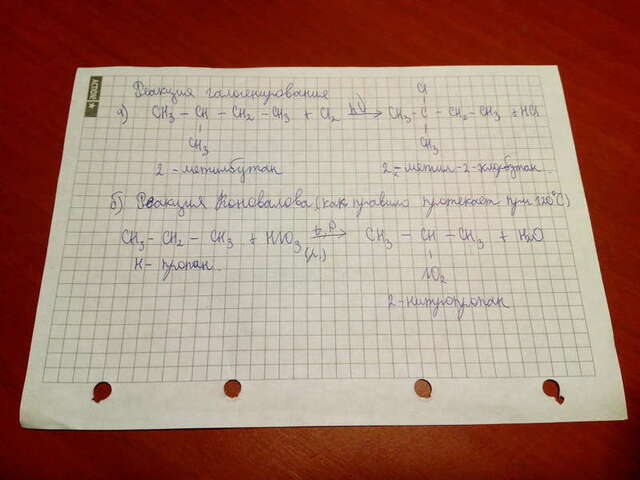 Реакция галогенирования
Cl
а) CH3 – CH – CH2 – CH3 + Cl2 hν→ CH3 – C – CH2 – CH3 + HCl
CH3 CH3
2 - метилбутан 2 - метил - 2 - хлорбутан
б) Реакция Коновалова (как правило протекает при 120°C)
CH3 – CH2 – CH3 + HNO3 (р.) t, p→ CH3 – CH – CH3 + H2O
н - пропан NO2
2 - нитропропан
ACTION!